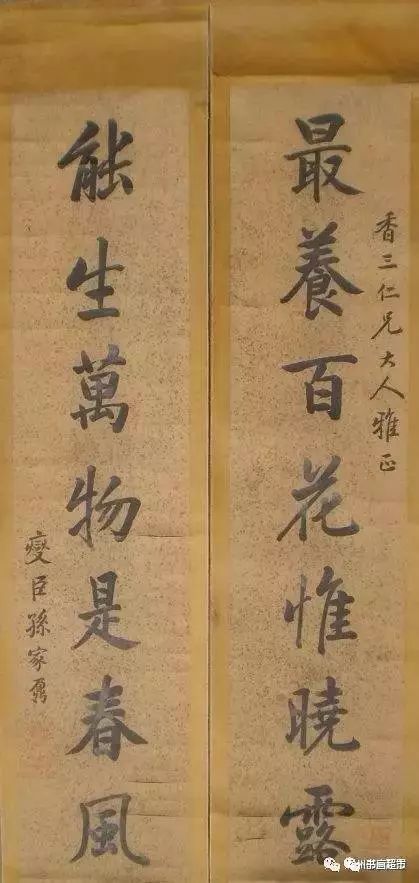 香三仁兄大人雅正
最養百花惟曉露
能生萬物是春風
燮臣孫家鼐
超市